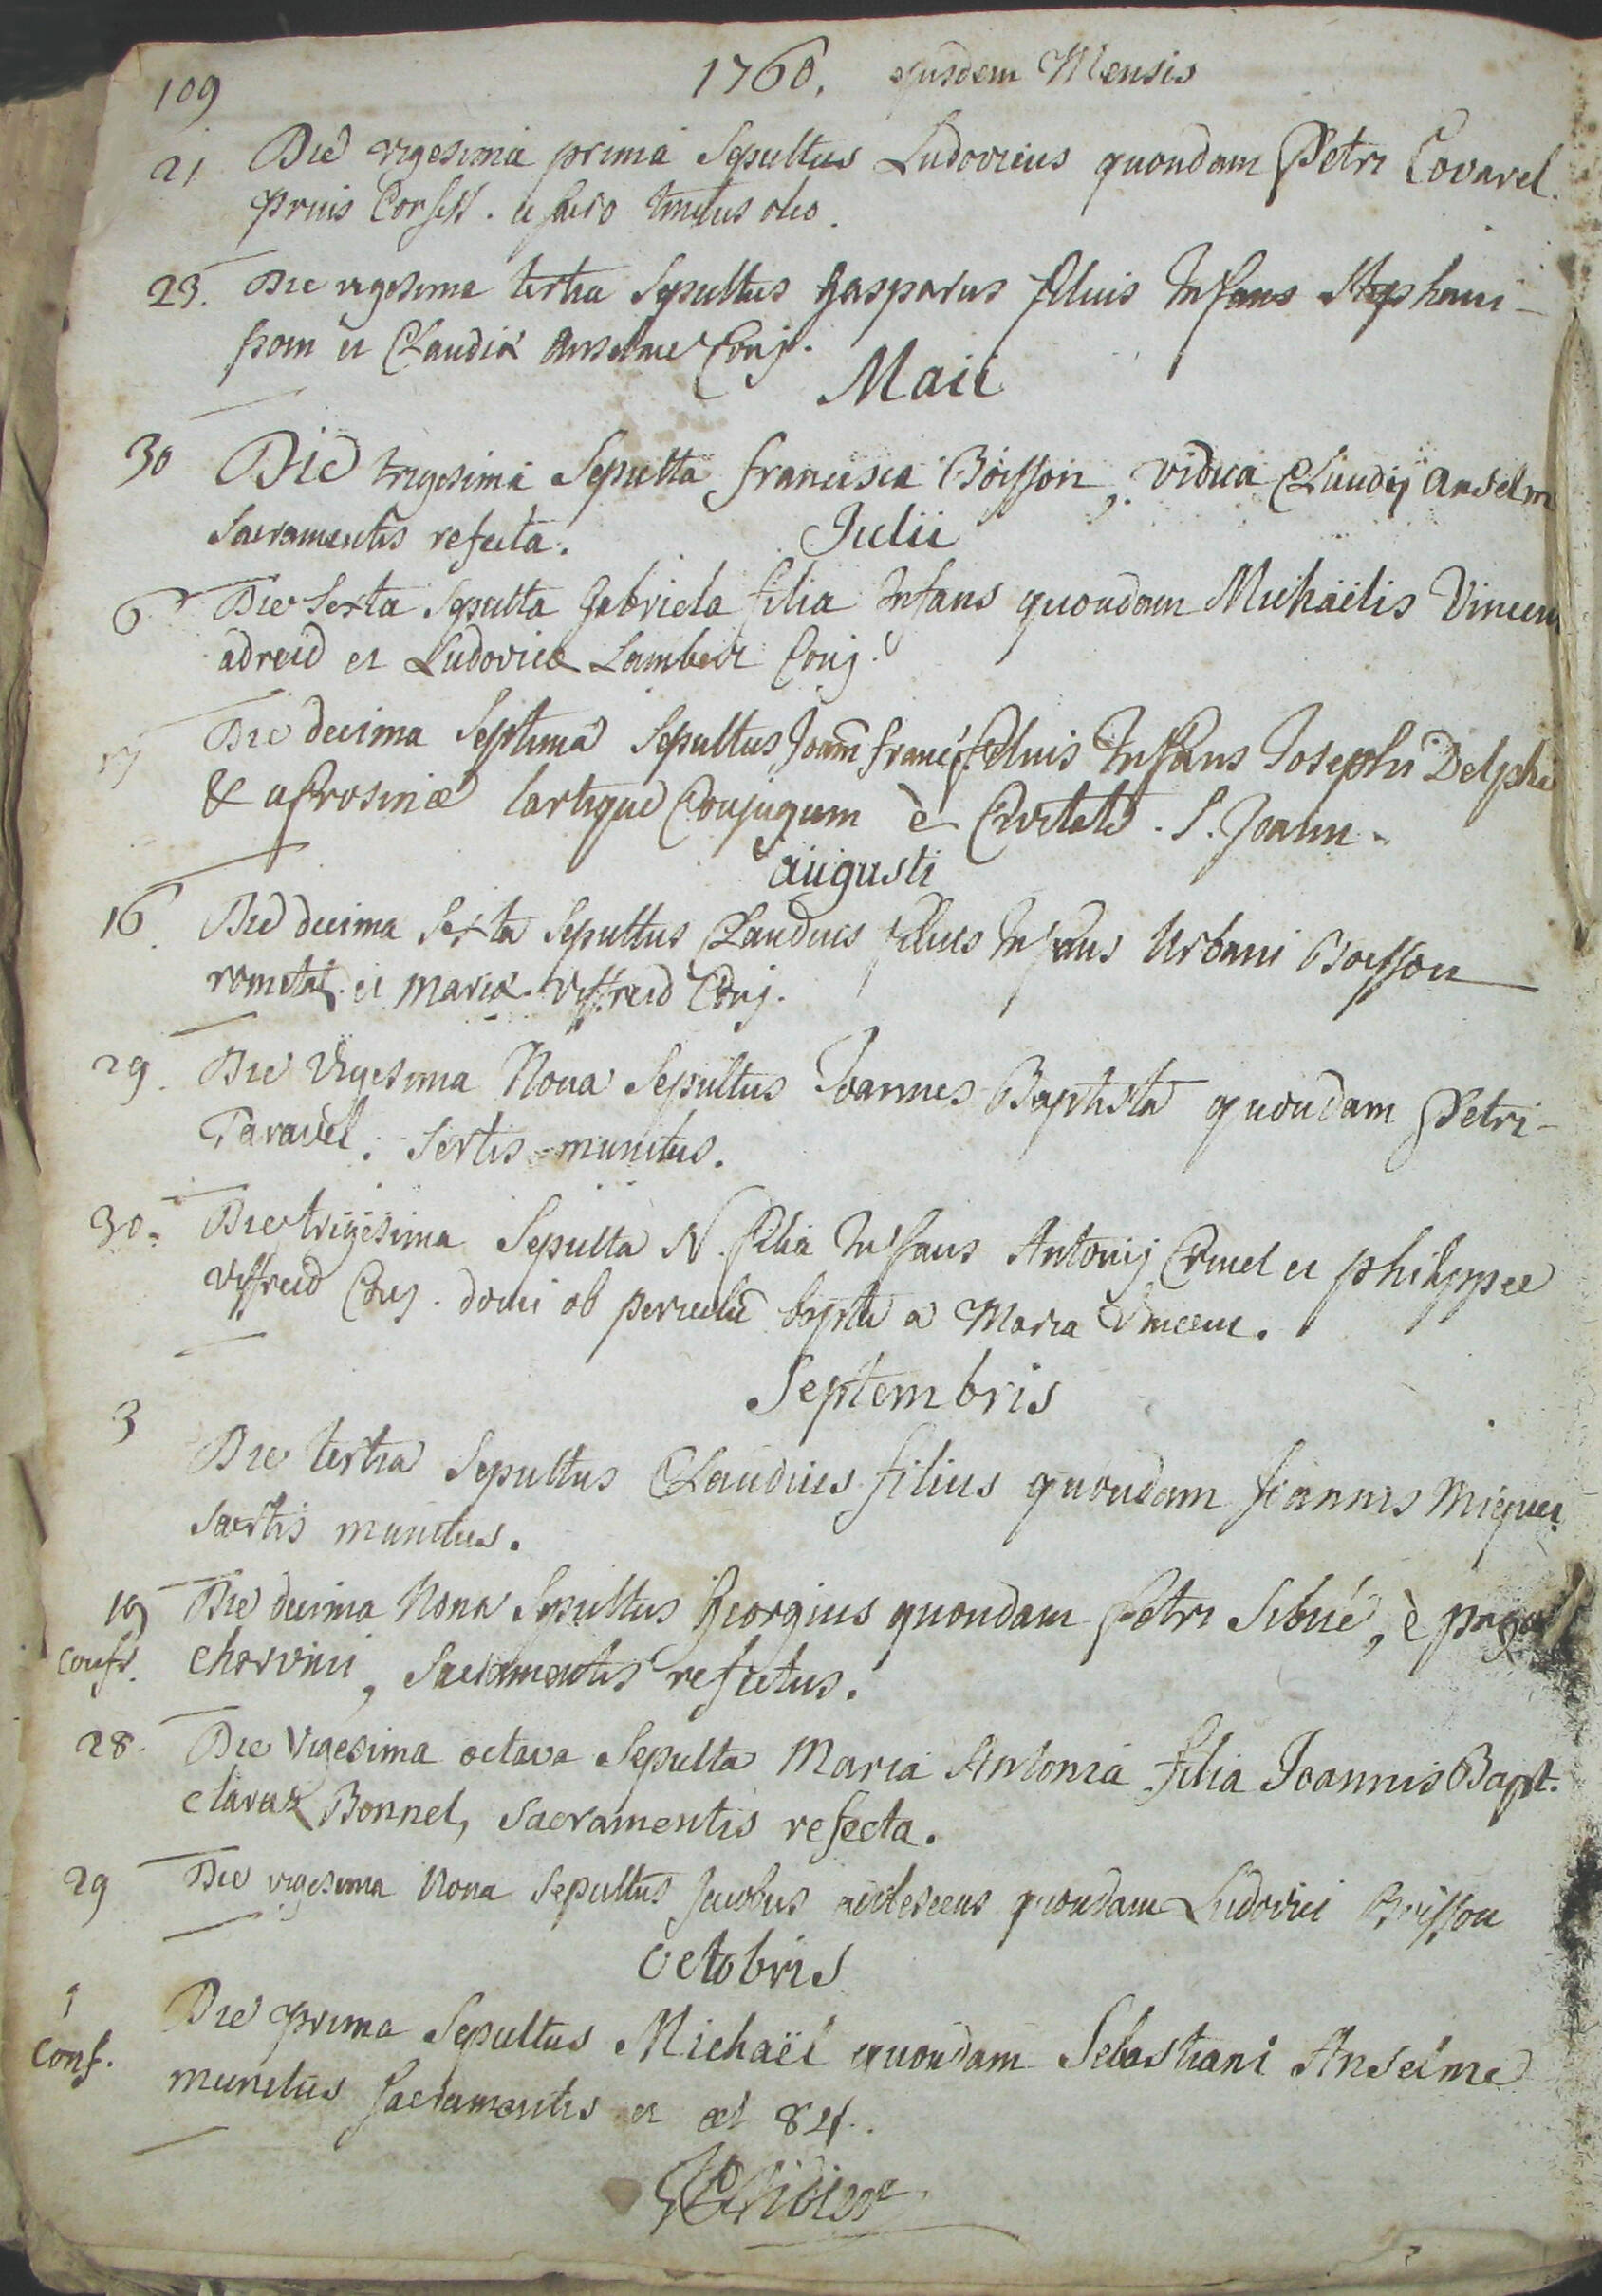 109
1760. ejusdem Mensis
21 Die vigesima prima Sepultus Ludovicus quondam Petri Covarel
prius Confess. et sacro unctus oleo.
23. Die vigesima tertia Sepultus Gasparus filius Infans Stephani
et Claudiæ Anselme Conj.
Maii
30 Die trigesima Sepulta francisca Boisson, vidua Claudij Anselm
Sacramentis refecta.
Julii
6 Die Sexta Sepulta Gabriela filia Infans quondam Michaëlis Vincen
et Ludovicæ Lambert Conj.
17 Die decima Septima Sepultus Joan franc. filius Infans Josephi Delphi
& ufrosinæ lartigue Conjugum è Civitate S. Joann.
augusti
16. Die decima Sexta Sepultus Claudius filius Infans Urbani Boisson
et mariæ Viffreid Conj.
29. Die Vigesima Nona Sepultus Joannes Baptista quondam Petri
Taravel. Sertis munitus.
30. Die trigesima Sepulta N. filia Infans Antonij Cruel et philippæ
Viffreid Conj. domi ob periculū bapta a Maria Vincen.
Septembris
3 Die tertia Sepultus Claudius filius quondam Joannis Miquet
Sactis munitus.
19 Die decima Nona Sepultus Georgius quondam Petri Sibué, è pago
Confr. Chervini, Sacramentis refectus.
28. Die Vigesima octava Sepulta Maria Antonia filia Joannis Bapt.
claraz Bonnel, Sacramentis refecta.
29 Die vigesima Nona Sepultus Jacobus adolescens quondam Ludovici Boisson
octobris
1 Die prima Sepultus Michaël quondam Sebastiani Anselme
Conf. munitus Sacramentis et æt 84.
Didier